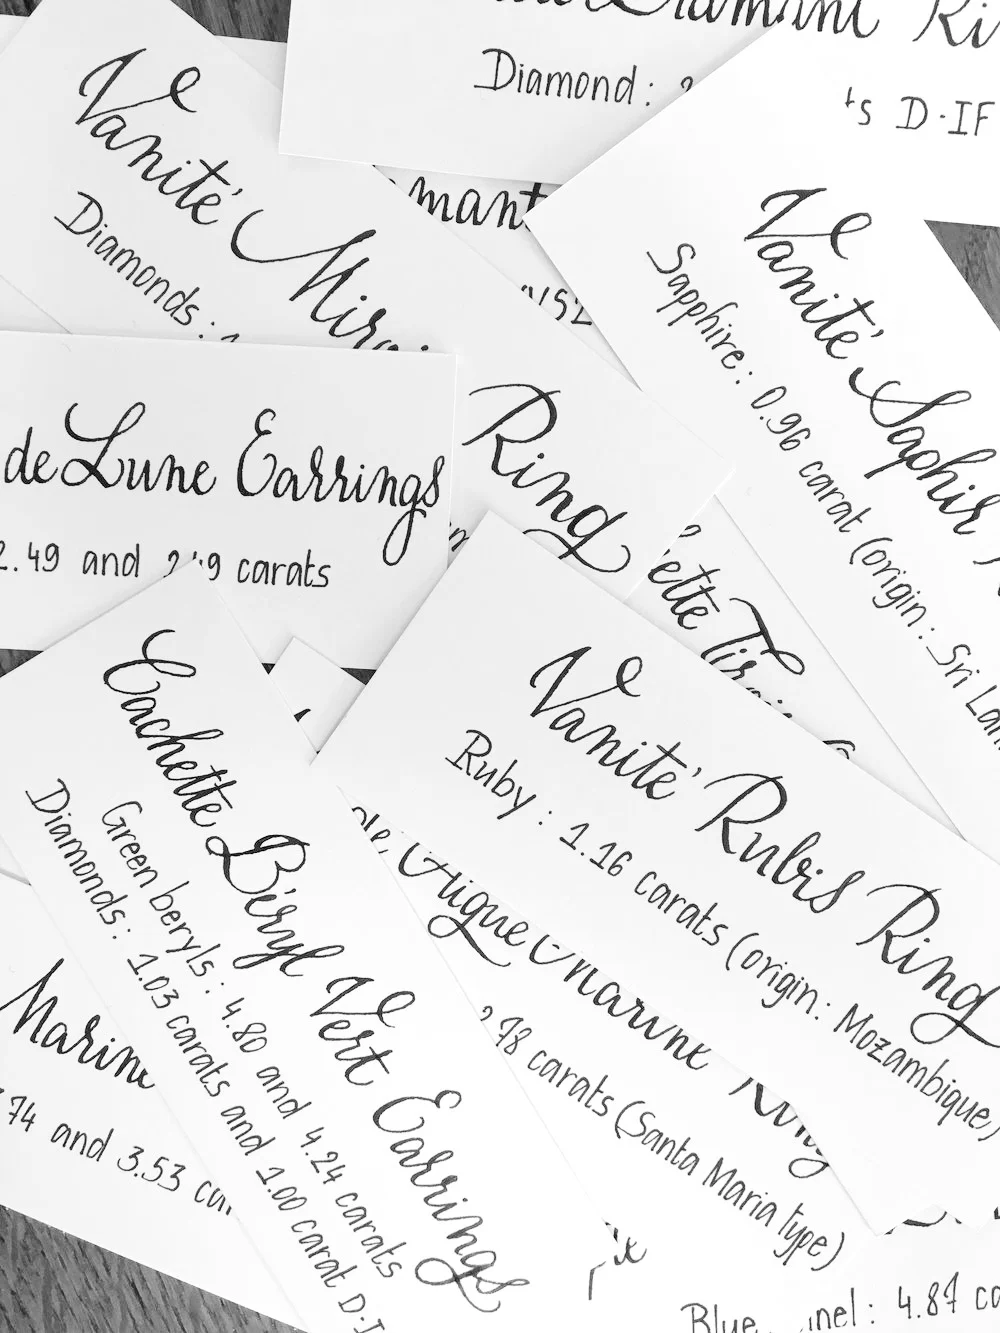 Diamant Ri
Diamond :
D·IF
Vanité
Diamonds :
mant
VS2
Vanité Saphir
Sapphire : 0.96 carat (origin : Sri Lan
Ring
de Lune Earrings
2.49 and 2.49 carats
ette Tiroir
Vanité Rubis Ring
Ruby : 1.16 carats (origin : Mozambique)
Cachette Béryl Vert Earrings
Green beryls : 4.80 and 4.24 carats
Diamonds : 1.03 carats and 1.00 carat D·I
Marine
.74 and 3.53
Marine Ring
carats (Santa Maria type)
Blue
nel : 4.87 ca